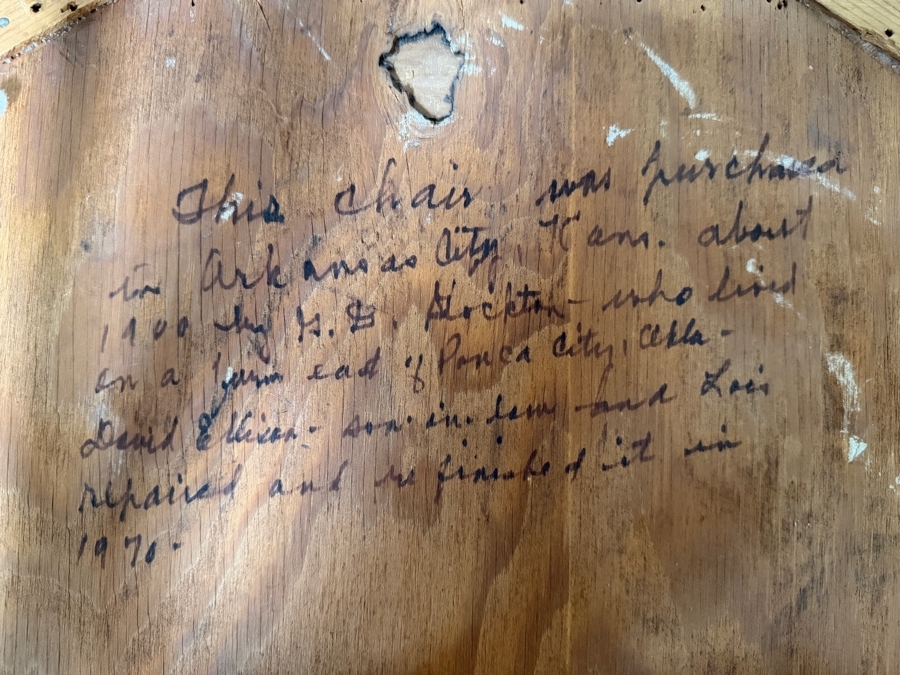 This chair was purchased
in Arkansas City, Kans. about
1900 by G. B. Stockton who lived
on a farm east of Ponca City, Okla -
David Ellison - son-in-law and Lois
repaired and refinished it in
1970 -